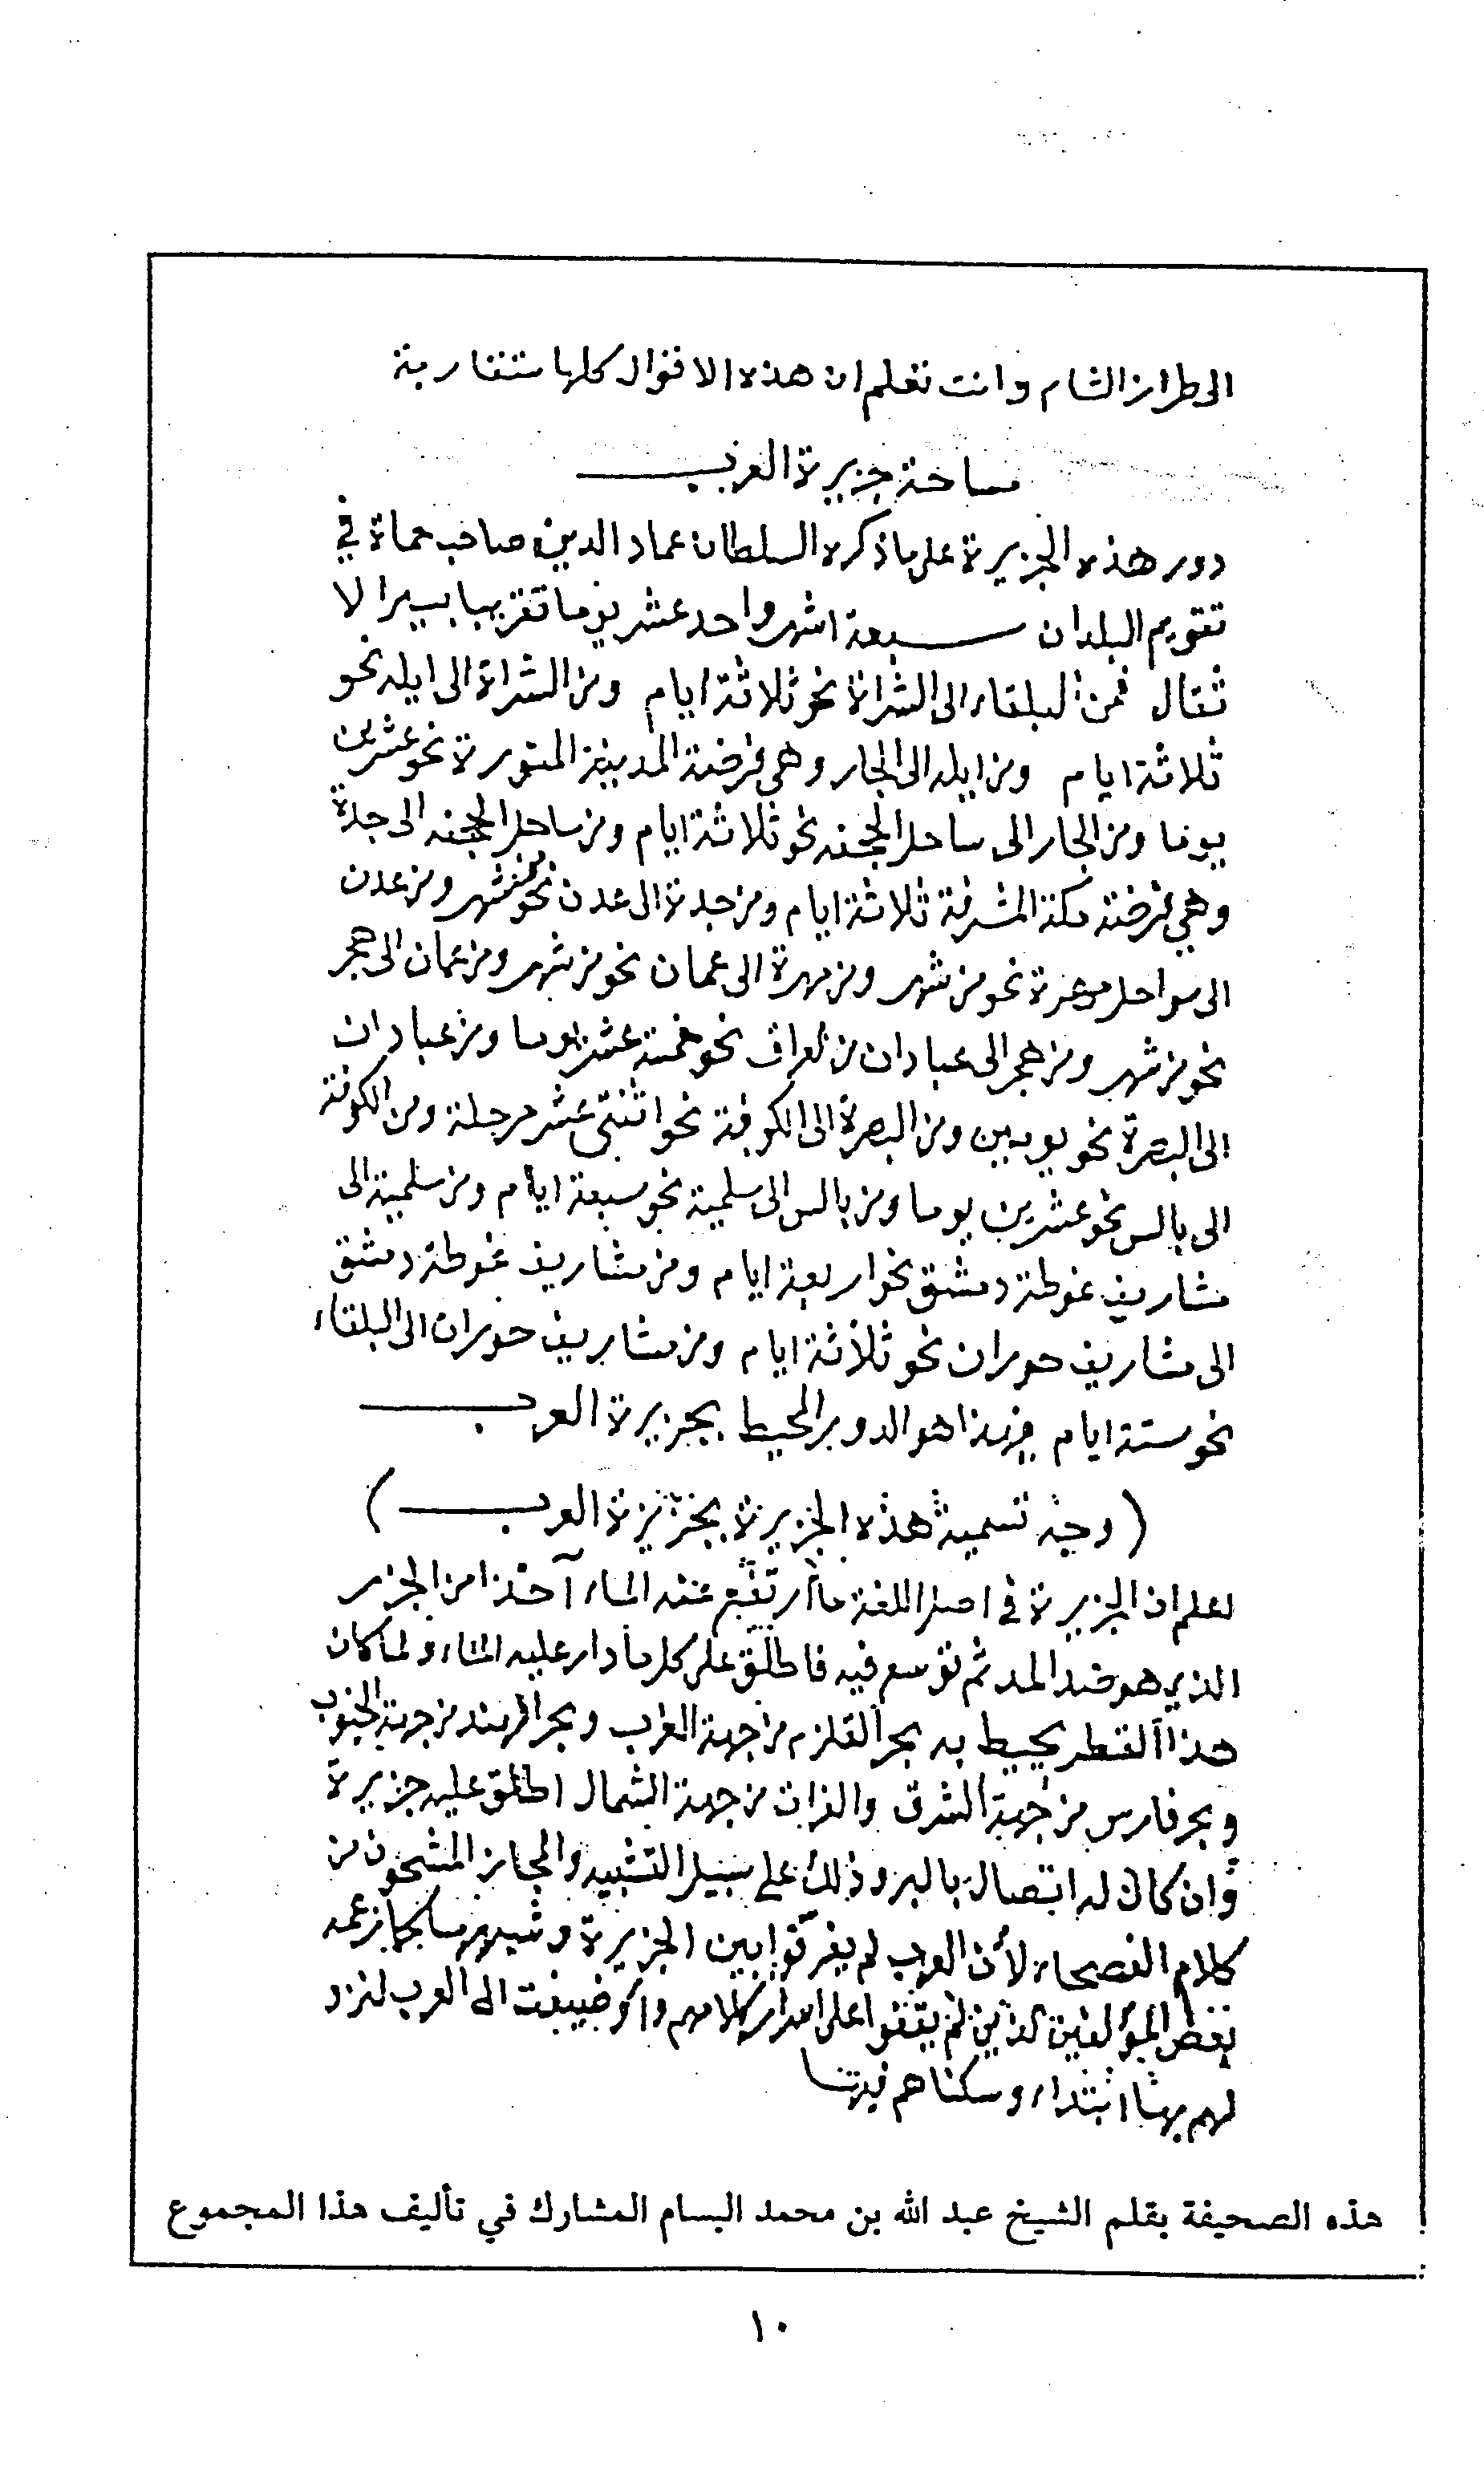 الى طراز الشام وانت تعلم ان هذه الاقوال كلها متقاربة
مساحة جزيرة العرب
دور هذه الجزيرة على ما ذكره السلطان عماد الدين صاحب حماة في
تقويم البلدان سبعة اشهر واحد عشر يوما تقريبا بسير الا
ثقال فمن البلقاء الى الشراة نحو ثلاثة ايام ومن الشراة الى ايله نحو
ثلاثة ايام ومن ايله الى الجار وهي فرضة المدينة المنورة نحو عشرين
يوما ومن الجار الى ساحل الجحفه نحو ثلاثة ايام ومن ساحل الجحفه الى جدة
وهي فرضة مكة المشرفة ثلاثة ايام ومن جدة الى عدن نحو من شهر ومن عدن
الى سواحل مهرة نحو من شهر ومن مهرة الى عمان نحو من شهر ومن عمان الى هجر
نحو من شهر ومن هجر الى عبادان من العراق نحو خمسة عشر يوما ومن عبادان
الى البصرة نحو يومين ومن البصرة الى الكوفة نحو اثنتى عشر مرحلة ومن الكوفة
الى بالس نحو عشرين يوما ومن بالس الى سلمية نحو سبعة ايام ومن سلمية الى
مشاريف غوطة دمشق نحو اربعة ايام ومن مشاريف غوطة دمشق
الى مشاريف حوران نحو ثلاثة ايام ومن مشاريف حوران الى البلقاء
نحو ستة ايام فهذا هو الدور المحيط بجزيرة العرب
( وجه تسمية هذه الجزيرة بجزيرة العرب )
اعلم ان الجزيرة في اصل اللغة ما ارتفع عنه الماء آخذا من الجزر
الذي هو ضد المد ثم توسع فيه فاطلق على كل ما دار عليه الماء ولما كان
هذا القطر يحيط به بحر القلزم من جهة الغرب وبحر الهند من جهة الجنوب
وبحر فارس من جهة الشرق والفرات من جهة الشمال اطلق عليه جزيرة
وان كان له اتصال بالبر وذلك على سبيل التشبيه والمجاز المشحون من
كلام الفصحاء لأن العرب لم يفرقوا بين الجزيرة وشبهها كما زعمه
بعض المؤلفين الذين لم يقفوا على اسرار كلامهم واضيفت الى العرب لنزو
لهم بها ابتداء وسكناهم فيها
هذه الصحيفة بقلم الشيخ عبد الله بن محمد البسام المشارك في تأليف هذا المجموع
١٠